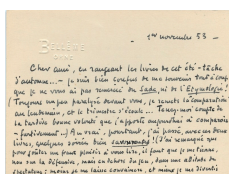 1er novembre 53 -
Cher ami, en rangeant les livres de cet été - tâche
d'automne... - je suis bien confus de me souvenir tout à coup
que je ne vous ai pas remercié du Sade, ni de l'Etymologie !
(Toujours un peu paralysé devant vous, je remets la comparution
au lendemain, et le trimestre s'écoule... Tenez-moi compte de
la tardive bonne volonté que j'apporte aujourd'hui à comparaître
- fortement...) Au vrai, pourtant, j'ai passé, avec ces deux
livres, quelques soirées bien . (J'ai remarqué que
pour goûter un franc plaisir à vous lire, il faut que je me tienne,
non sur la défensive, mais en dehors du jeu, dans une attitude de
spectateur ; sinon je me laisse convaincre, et même je me divertis